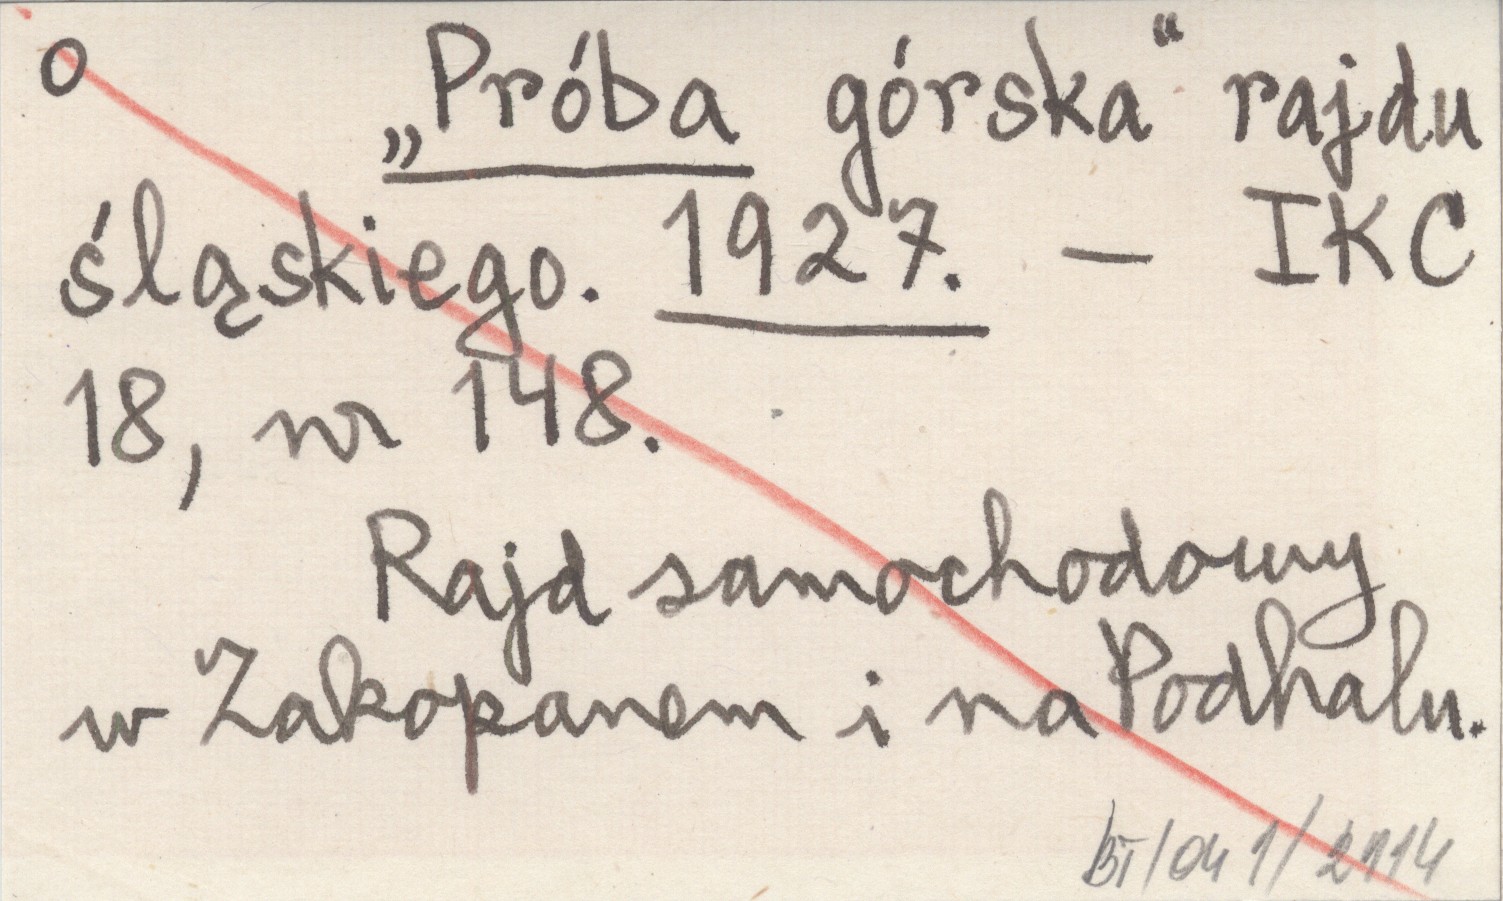 o „Próba górska“ rajdu
śląskiego. 1927. – IKC
18, nr 148.
Rajd samochodowy
w Zakopanem i na Podhalu.
BI/04 1/2114